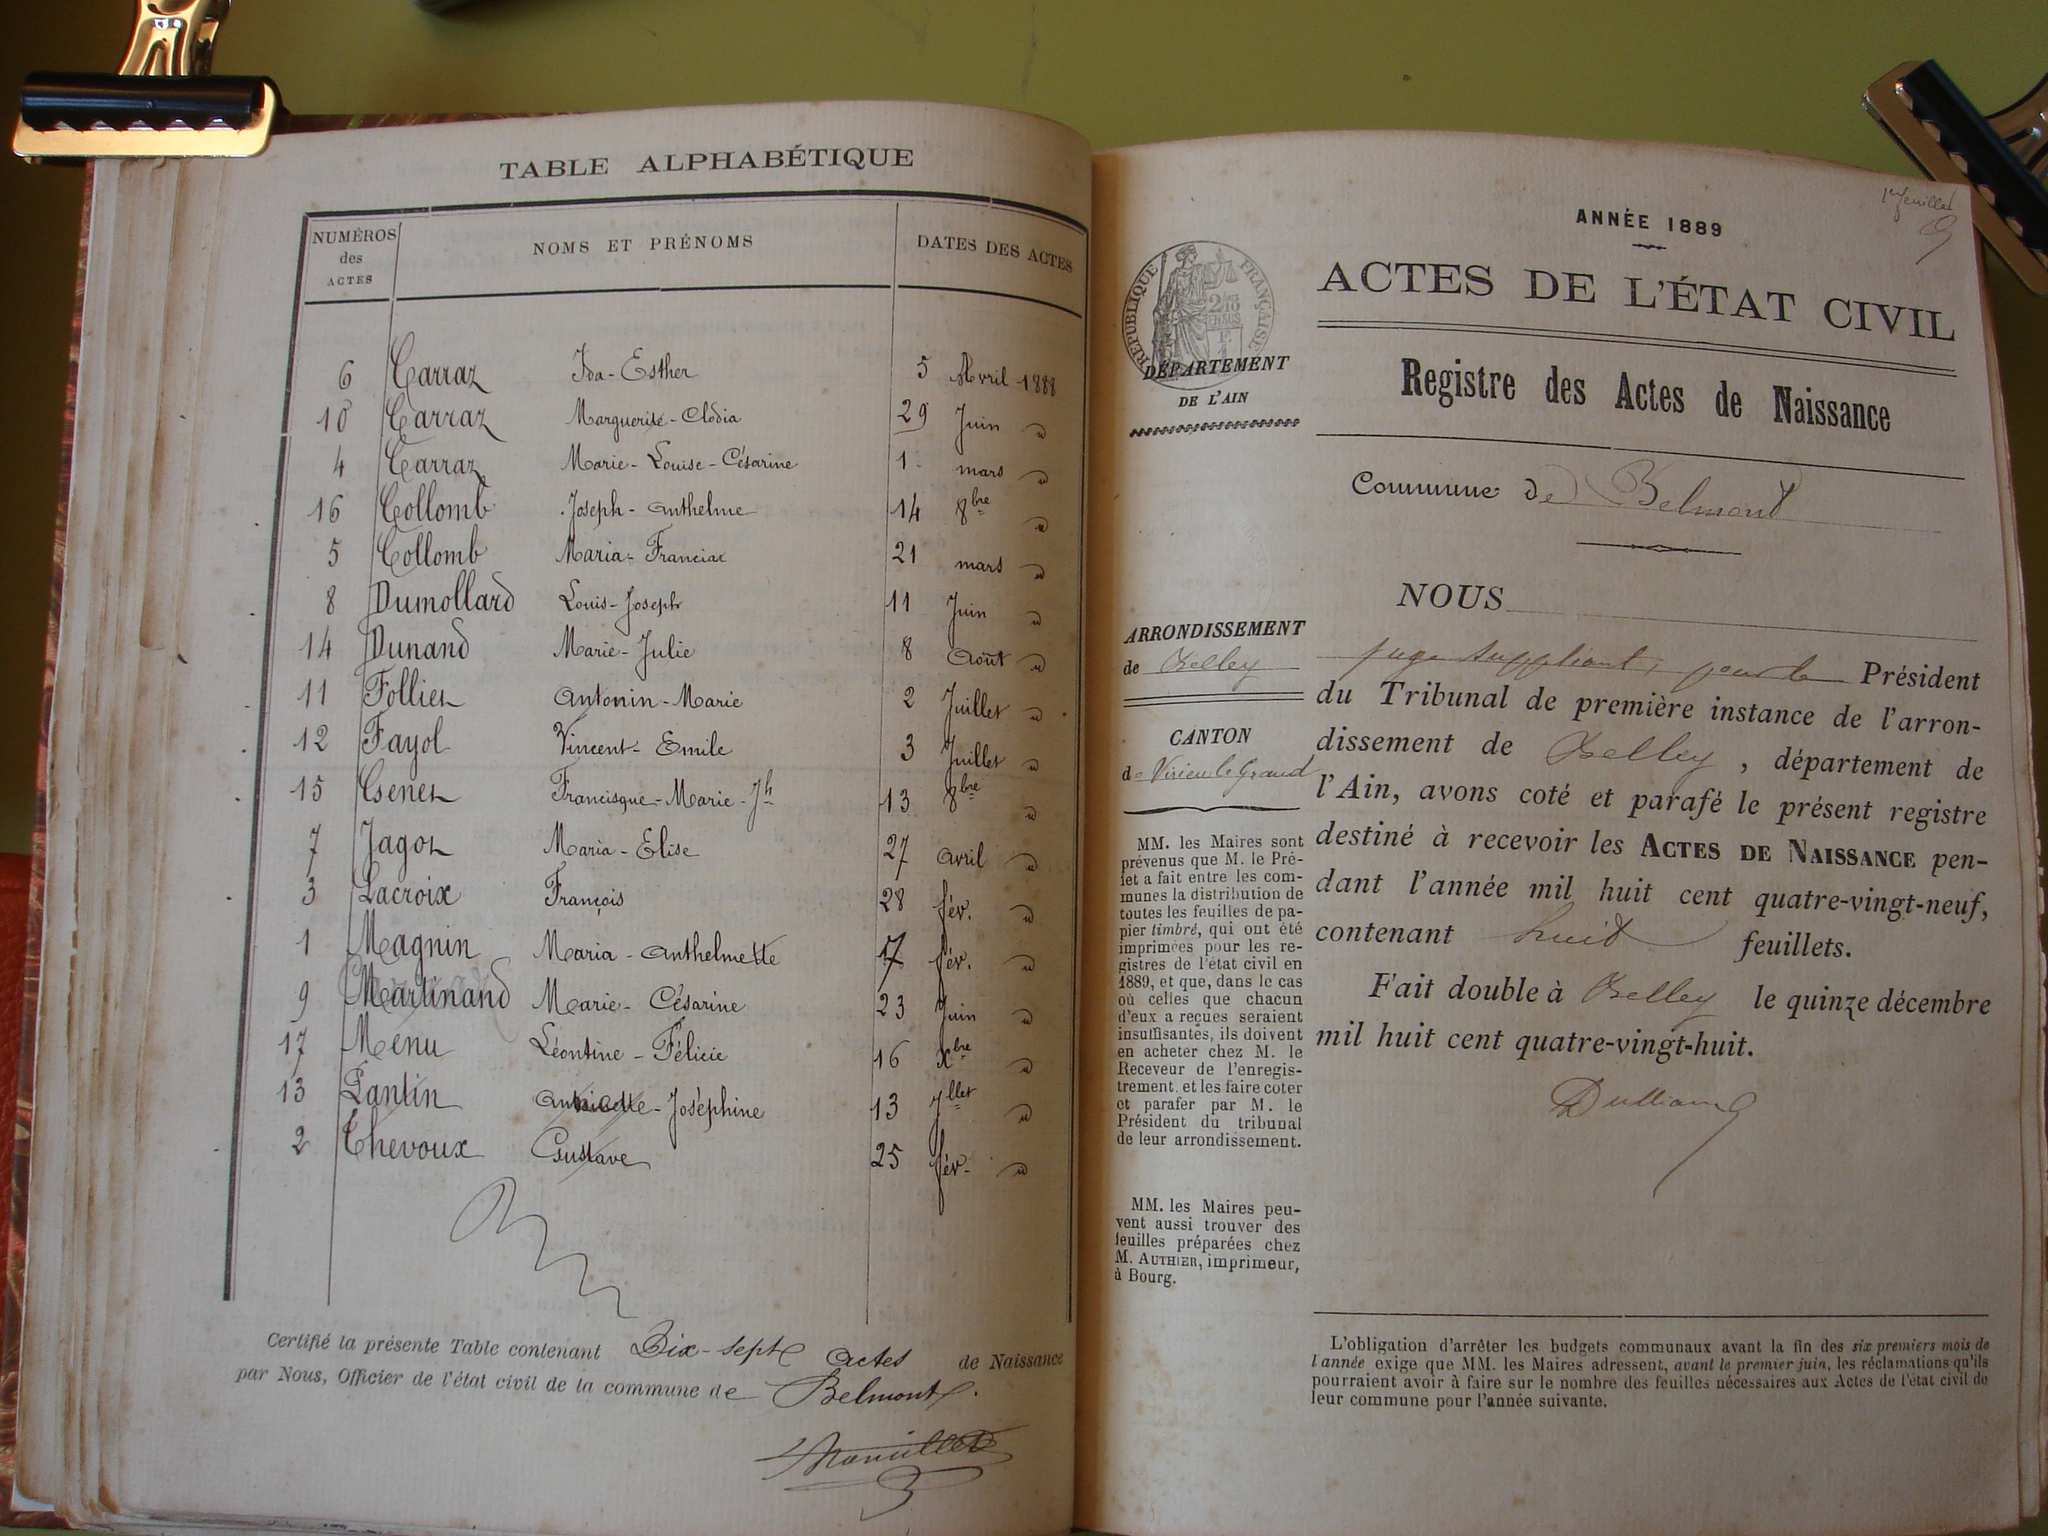 TABLE ALPHABÉTIQUE
NUMÉROS des ACTES NOMS ET PRÉNOMS DATES DES ACTES
6 Carraz Ida-Esther 5 Avril 1888
10 Carraz Marguerite-Clodia 29 Juin "
4 Carraz Marie-Louise-Césarine 1 mars "
16 Collomb Joseph-Anthelme 14 8bre "
5 Collomb Maria- 21 mars "
8 Dumollard Louis-Joseph 11 Juin "
14 Dunand Marie-Julie 8 Août "
11 Follier Antonin-Marie 2 Juillet "
12 Fayol Vincent-Emile 3 Juillet "
15 Genet Francisque-Marie-Jh 13 8bre "
7 Jagot Maria-Elise 27 avril "
3 Lacroix François 28 fév. "
1 Magnin Maria-Anthelmette 17 fév. "
9 Martinand Marie-Césarine 23 Juin "
17 Menu Léontine-Félicie 16 Xbre "
13 Pantin Joséphine 13 Jllet "
2 Thevoux Gustave 25 fév. "
Certifié la présente Table contenant Dix-sept actes de Naissance
par Nous, Officier de l'état civil de la commune de Belmont.
1er feuillet
ANNÉE 1889
RÉPUBLIQUE FRANÇAISE
ACTES DE L'ÉTAT CIVIL
DÉPARTEMENT
DE L'AIN
Registre des Actes de Naissance
Commune de Belmont
ARRONDISSEMENT
de Belley
CANTON
de Virieu le Grand
MM. les Maires sont
prévenus que M. le Pré-
fet a fait entre les com-
munes la distribution de
toutes les feuilles de pa-
pier timbré, qui ont été
imprimées pour les re-
gistres de l'état civil en
1889, et que, dans le cas
où celles que chacun
d'eux a reçues seraient
insuffisantes, ils doivent
en acheter chez M. le
Receveur de l'enregis-
trement, et les faire coter
et parafer par M. le
Président du tribunal
de leur arrondissement.
MM. les Maires peu-
vent aussi trouver des
feuilles préparées chez
M. AUTHIER, imprimeur,
à Bourg.
NOUS
juge suppléant, pour le Président
du Tribunal de première instance de l'arron-
dissement de Belley, département de
l'Ain, avons coté et parafé le présent registre
destiné à recevoir les ACTES DE NAISSANCE pen-
dant l'année mil huit cent quatre-vingt-neuf,
contenant huit feuillets.
Fait double à Belley le quinze décembre
mil huit cent quatre-vingt-huit.
L'obligation d'arrêter les budgets communaux avant la fin des six premiers mois de
l'année exige que MM. les Maires adressent, avant le premier juin, les réclamations qu'ils
pourraient avoir à faire sur le nombre des feuilles nécessaires aux Actes de l'état civil de
leur commune pour l'année suivante.